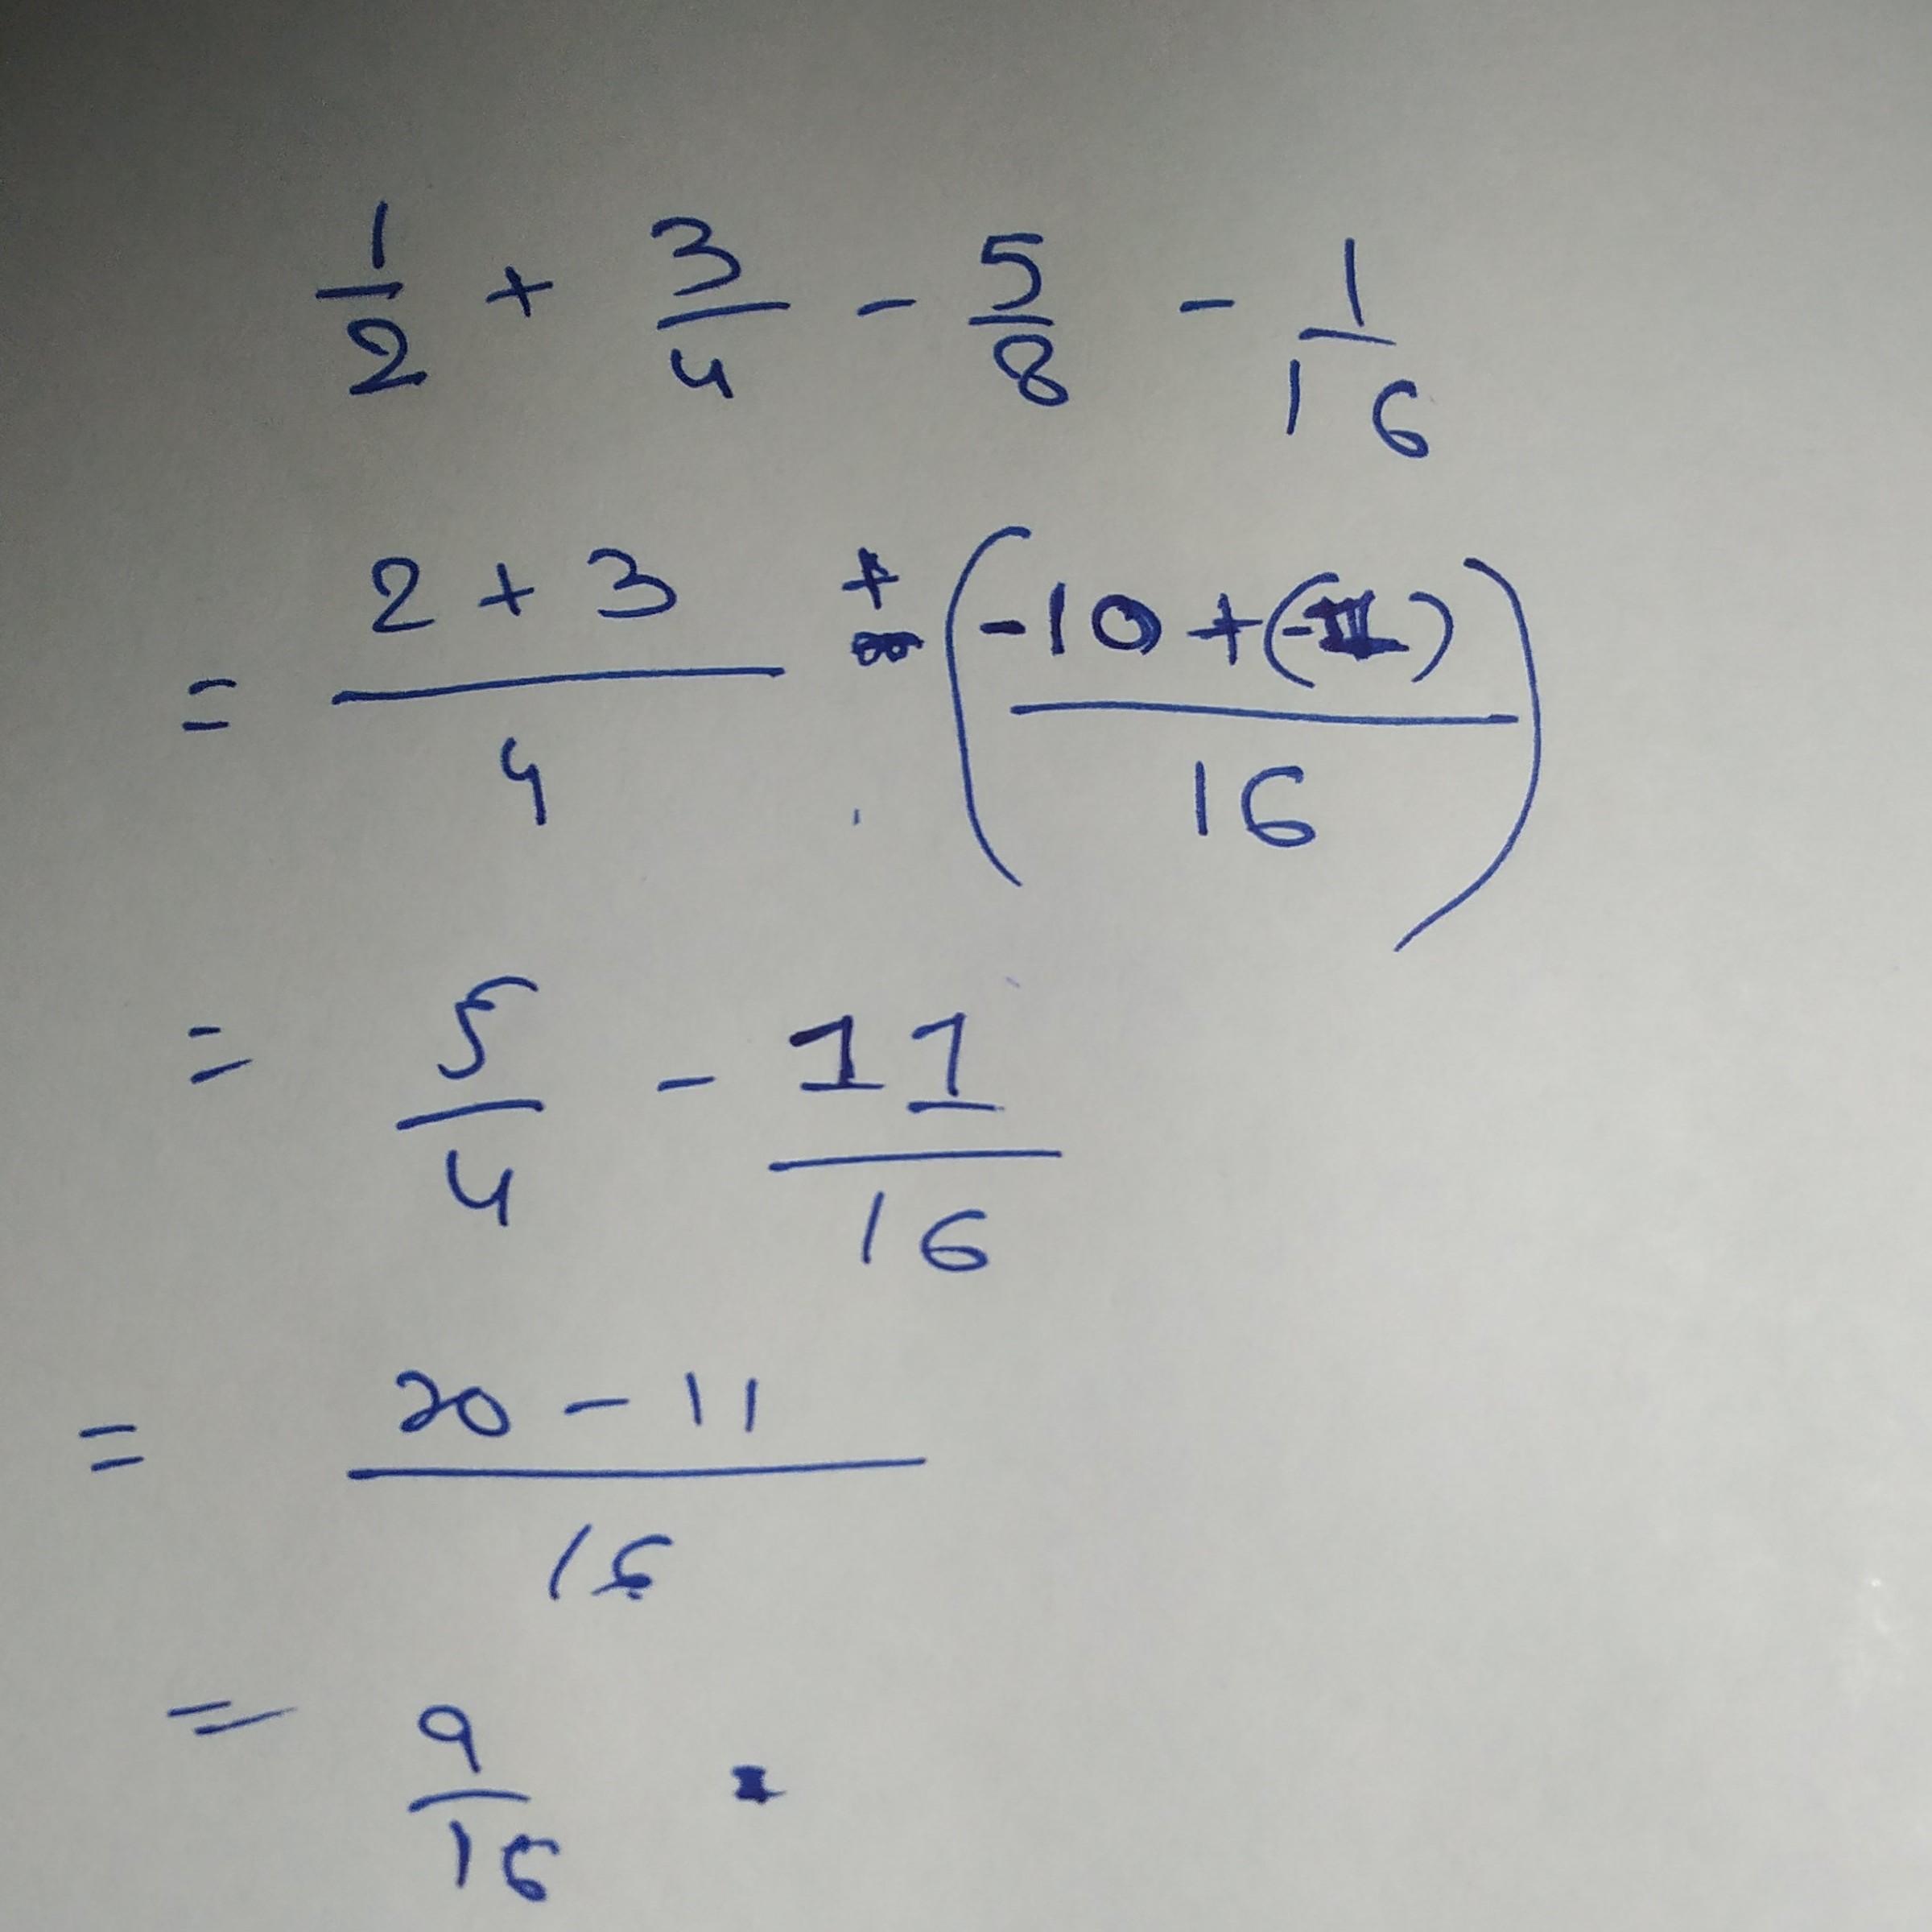 1/2 + 3/4 - 5/8 - 1/16
= (2 + 3)/4 + ((-10 + (-1))/16)
= 5/4 - 11/16
= (20 - 11)/16
= 9/16